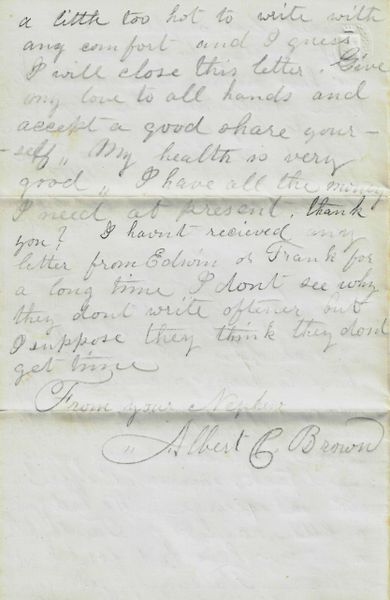 a little too hot to write with
any comfort and I guess
I will close this letter. Give
my love to all hands and
accept a good share your-
self „ My health is very
good „ I have all the money
I need at present, thank
you? I havnt recieved any
letter from Edwin or Frank for
a long time I dont see why
they dont write oftener but
I suppose they think they dont
get time
From your Nephew
„ Albert C. Brown